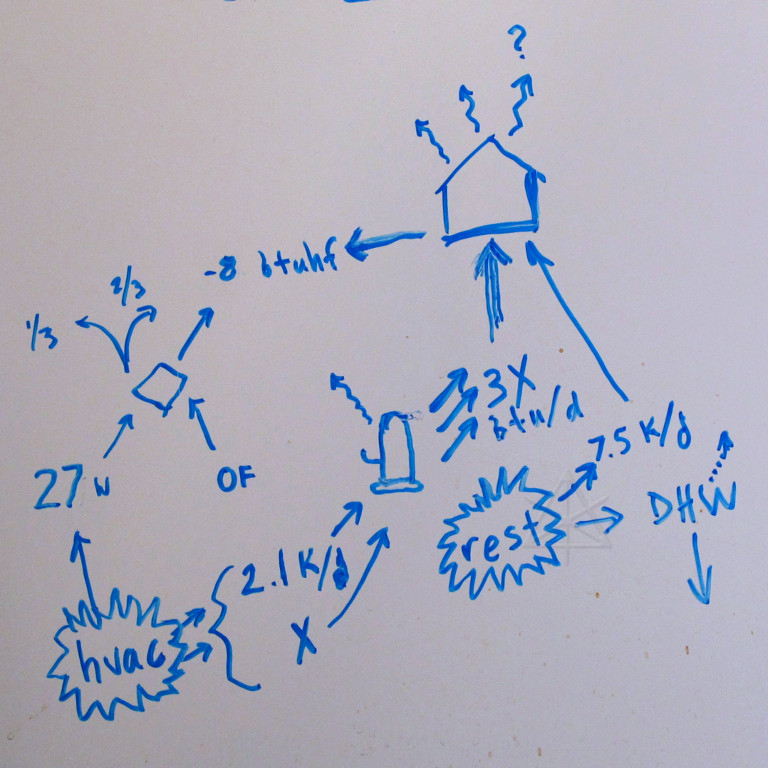 ?
-8 btuhf
2/3
1/3
3X
btu/d
7.5 K/d
27 W
OF
DHW
rest
2.1 K/d
X
hvac